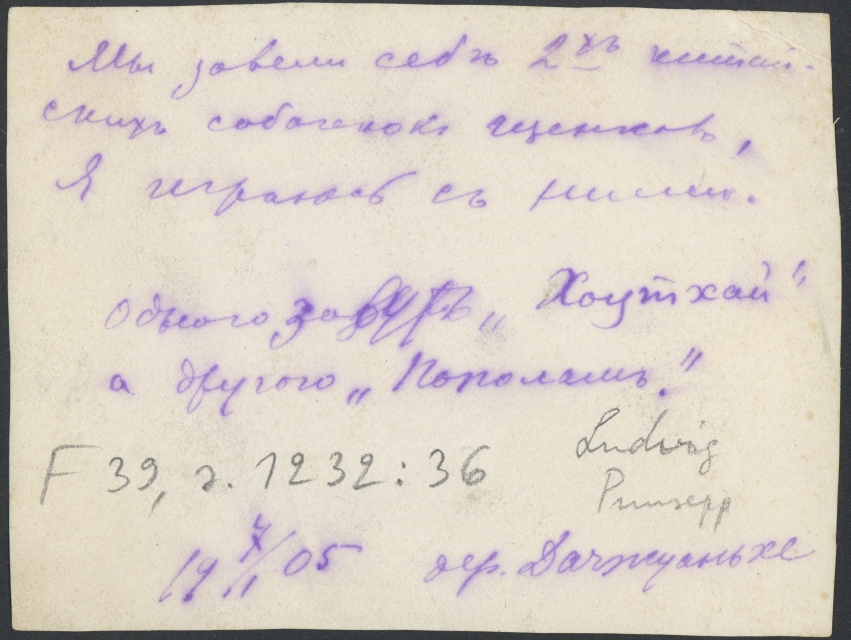 Мы завели себѣ 2хъ китай-
скихъ собаченокъ щенковъ,
Я играюсь съ ними.
Одного зовутъ „Хоутхай"
а другого „Пополамъ."
F 39, s. 1232:36
Ludvig
Puusepp
19 4/II 05 дер. Дачжуаньхе